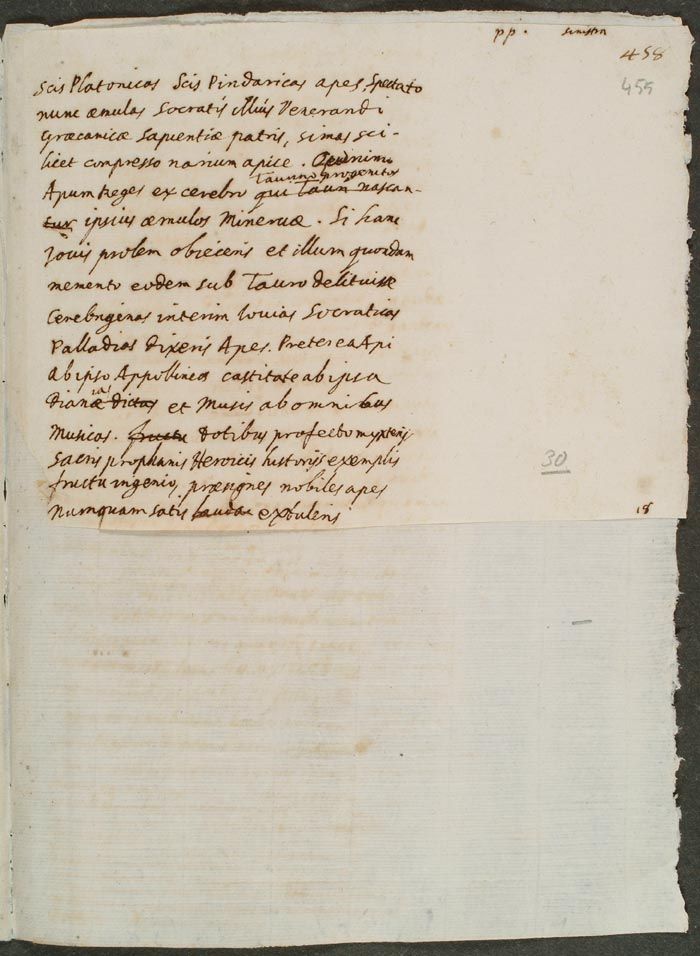 pp. sinistra
458
455
Scis Platonicas Scis Pindaricas apes, Spectato
nunc æmulas Socratis illius Venerandi
Græcanicæ Sapientiæ patris, simas sci-
licet compresso narium apice. Quinimo
Taurino progenitos
Apum Reges ex cerebro qui Tauri nascan-
tur ipsius æmulos Minervæ. Si hanc
Jovis prolem obieceris et illum quondam
memento eodem sub Tauro delituisse
Cerebrigenas interim Iovias Socraticas
Palladias dixeris Apes. Preterea Api
ab ipso Appolline castitate ab ipsa
Dianæ dictas et Musis ab omnibus
Musicas. fructu Dotibus profecto mysterijs
Sacris prophanis Heroicis historijs exemplis
fructu ingenio, præsignes nobiles apes
Numquam satis laudae extuleris
30
18